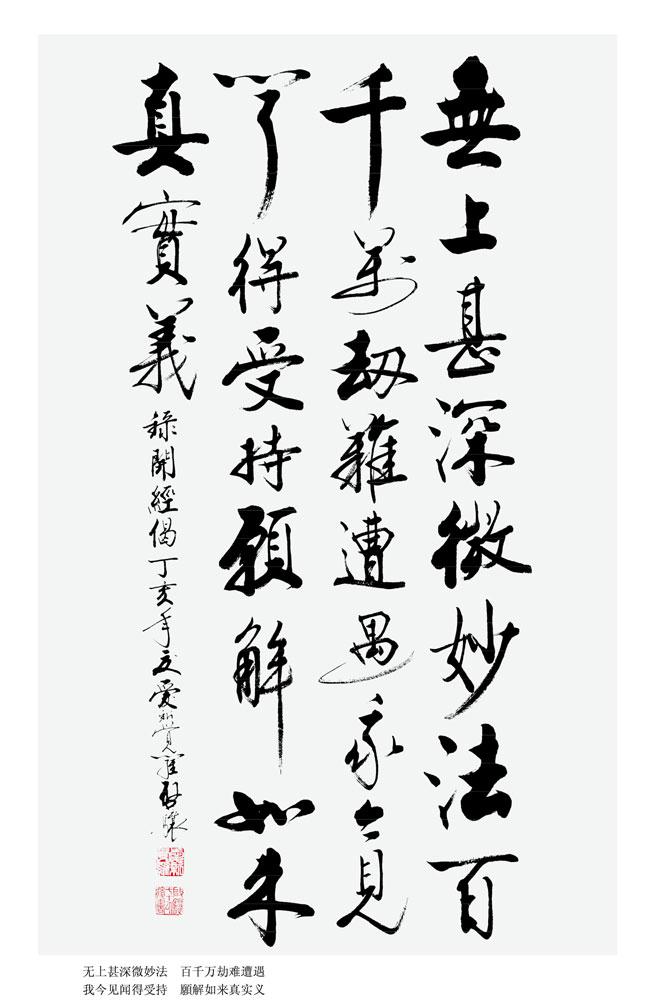 無上甚深微妙法百
千萬劫難遭遇我今見
聞得受持願解如来
真實義
録開經偈丁亥年立夏
无上甚深微妙法　百千万劫难遭遇
我今见闻得受持　願解如来真实义